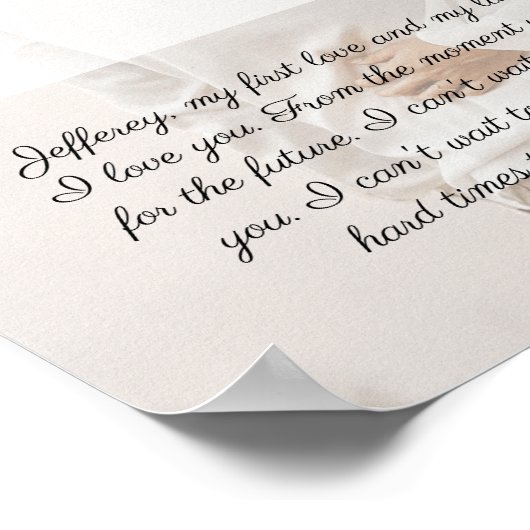 Jefferey, my first love and my
I love you. From the moment
for the future. I can't wait
you. I can't wait to
hard times